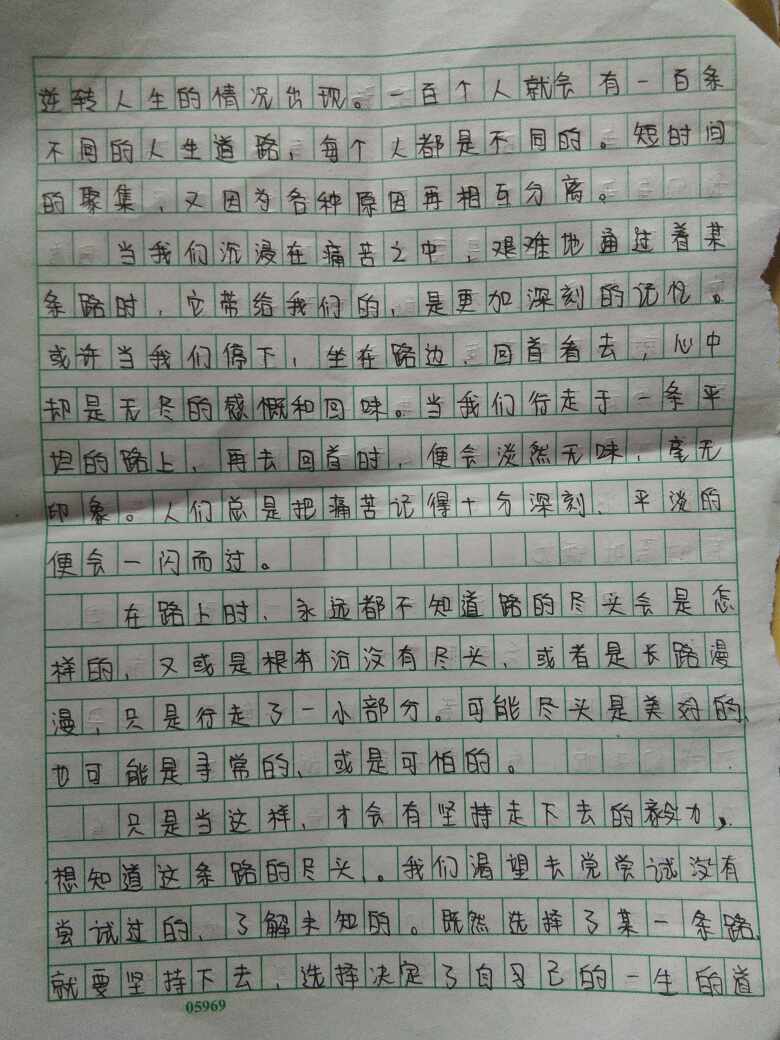 逆转人生的情况出现。一百个人就会有一百条
不同的人生道路，每个人都是不同的。短时间
的聚集，又因为各种原因再相互分离。
当我们沉浸在痛苦之中，艰难地通过着某
条路时，它带给我们的，是更加深刻的记忆。
或许当我们停下，坐在路边，回首看去，心中
却是无尽的感慨和回味。当我们行走于一条平
坦的路上，再去回首时，便会淡然无味，毫无
印象。人们总是把痛苦记得十分深刻，平淡的
便会一闪而过。
在路上时，永远都不知道路的尽头会是怎
样的，又或是根本没有尽头，或者是长路漫
漫，只是行走了一小部分。可能尽头是美好的，
也可能是寻常的，或是可怕的。
只是当这样，才会有坚持走下去的毅力，
想知道这条路的尽头。我们渴望去尝试没有
尝试过的，了解未知的。既然选择了某一条路，
就要坚持下去，选择决定了自己的一生的道
05969